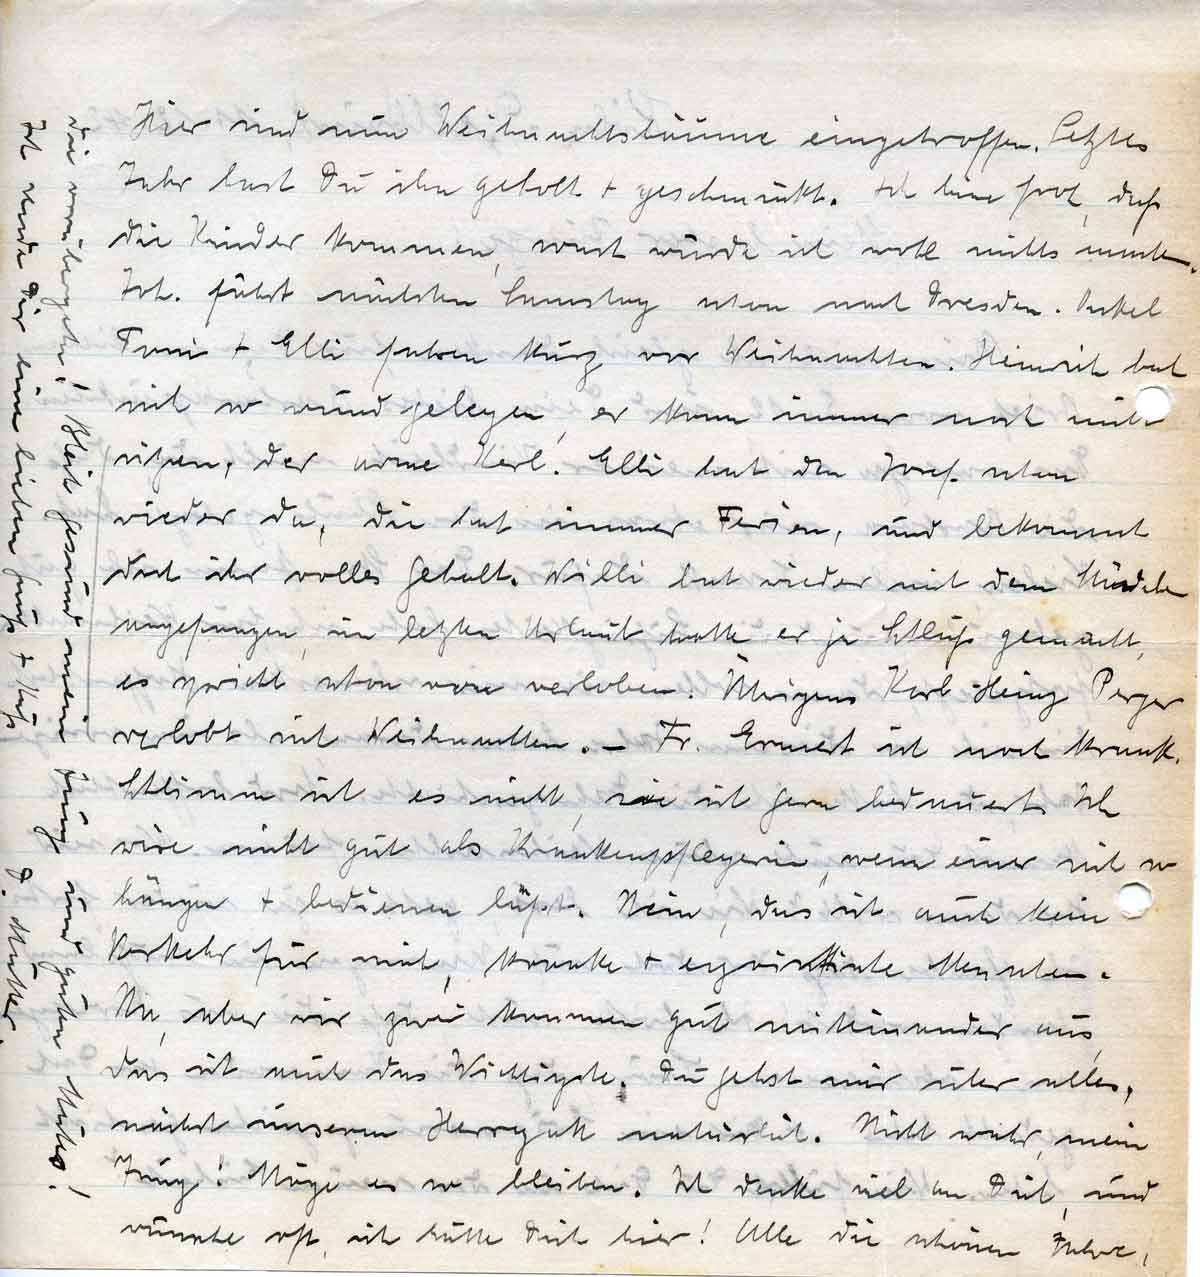 Hier sind nun Weihnachtsbäume eingetroffen. Letztes
Jahr hast Du ihn geholt + geschmückt. Ich bin froh, daß
die Kinder kommen, sonst würde ich wohl nichts machen.
Joh. fährt nächsten Samstag schon nach Dresden. Onkel
Toni + Elli fahren kurz vor Weihnachten. Heinrich hat
sich so wund gelegen, er kann immer noch nicht
sitzen, der arme Kerl. Elli hat den Josef schon
wieder da, die hat immer Ferien, und bekommt
doch ihr volles Gehalt. Willi hat wieder mit dem Mädchen
angefangen, im letzten Urlaub hatte er ja Schluß gemacht,
es spricht schon von verloben. Übrigens Karl-Heinz Perger
verlobt sich Weihnachten. – Fr. ist noch krank.
Schlimm ist es nicht, sie ist gern bedauert. Ich
wäre nicht gut als Krankenpflegerin, wenn einer sich so
hängen + bedienen läßt. Nein, das ist auch kein
Verkehr für mich, kranke + egoistische Menschen.
Na, aber wir zwei kommen gut miteinander aus,
das ist auch das Wichtigste. Du gehst mir über alles,
nächst unserem Herrgott natürlich. Nicht wahr, mein
Jung! Möge es so bleiben. Ich denke viel an Dich, und
wünsche oft, ich hätte Dich hier! Alle die schönen Jahre,
die vorübergehn! Bleib gesund mein Jung und guten Mutes!
Ich sende Dir einen lieben Gruß + Kuß
D. Mutter.